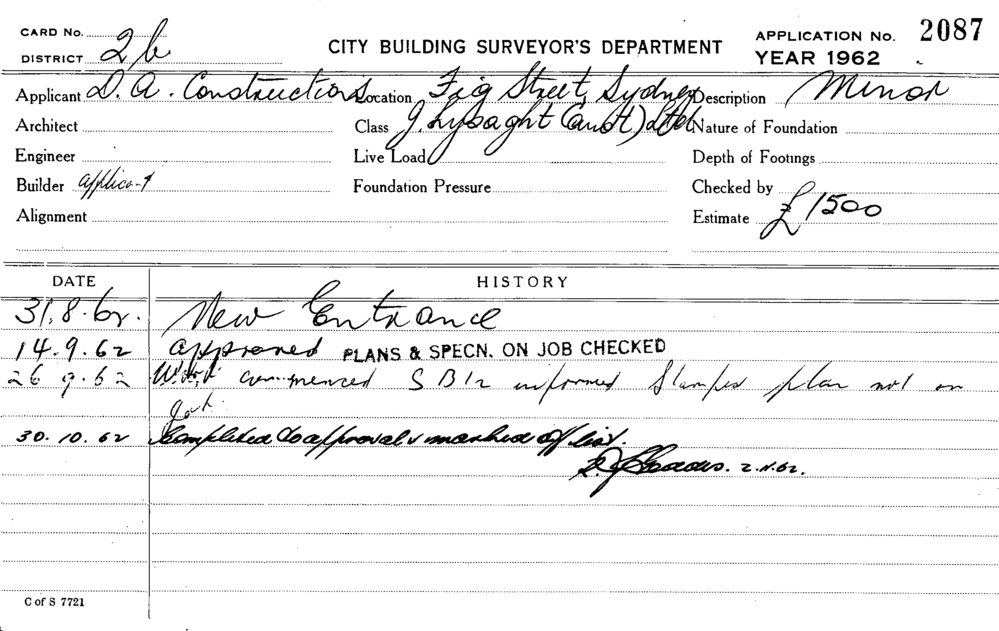 CARD No.
DISTRICT 2b
CITY BUILDING SURVEYOR'S DEPARTMENT
APPLICATION No. 2087
YEAR 1962
Applicant D. A. Constructions Location Fig Street, Sydney Description Minor
Architect Class J. Lysaght (Aust) Ltd Nature of Foundation
Engineer Live Load Depth of Footings
Builder applicant Foundation Pressure Checked by
Alignment Estimate £1500
DATE HISTORY
31.8.62. New Entrance
14.9.62 approved PLANS & SPECN. ON JOB CHECKED
26 9.62 Work commenced informed Stamped plan not on
job.
30.10.62 Completed to approval & marked off list.
2.11.62.
C of S 7721